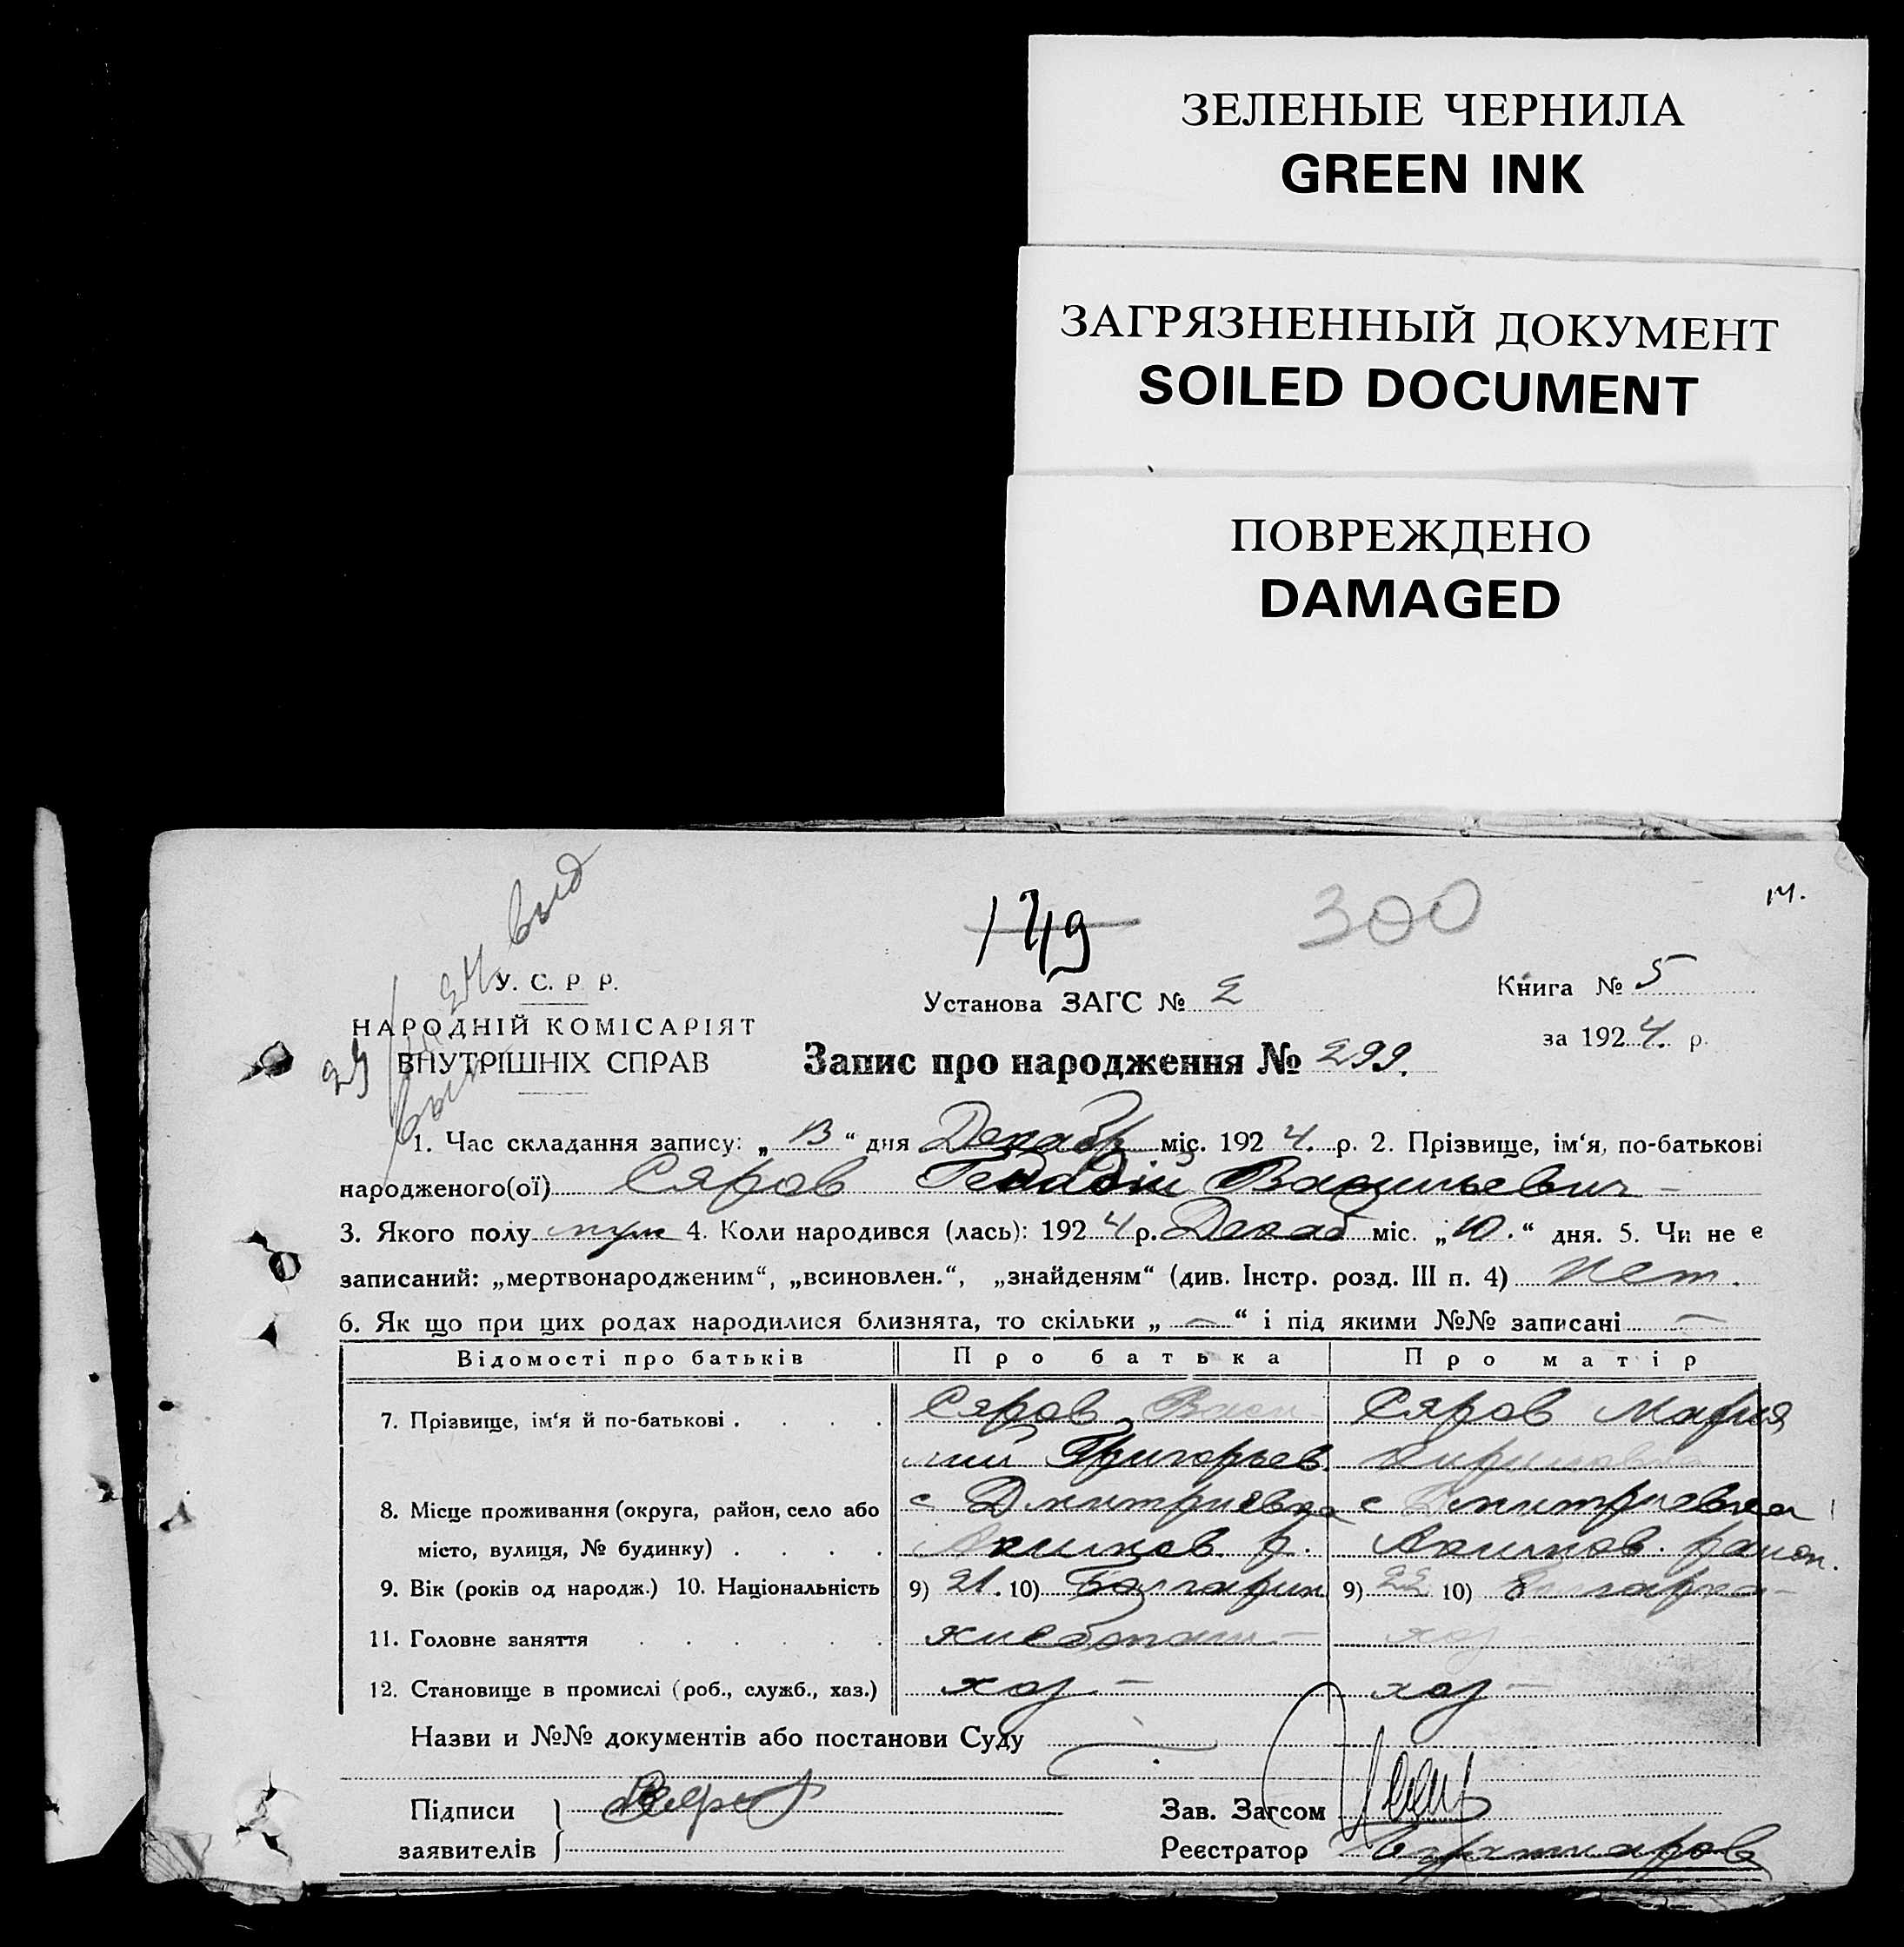 ЗЕЛЕНЫЕ ЧЕРНИЛА
GREEN INK
ЗАГРЯЗНЕННЫЙ ДОКУМЕНТ
SOILED DOCUMENT
ПОВРЕЖДЕНО
DAMAGED
149 300 м.
У. С. Р Р.
НАРОДНІЙ КОМІСАРІЯТ
ВНУТРІШНІХ СПРАВ
Установа ЗАГС № 2
Книга № 5
за 1924. р.
Запис про народження № 299.
1. Час складання запису: „13“ дня Декабр міс. 1924. р. 2. Прізвище, ім‘я, по-батькові
народженого(ої) Сяров Геннадій Васильевич
3. Якого полу муж 4. Коли народився (лась): 1924 р. Декаб міс. „10.“ дня. 5. Чи не є
записаний: „мертвонародженим“, „всиновлен.“, „знайденям“ (див. Інстр. розд. III п. 4) Нет.
6. Як що при цих родах народилися близнята, то скільки „ — “ і під якими №№ записані —
Відомості про батьків Про батька Про матір
7. Прізвище, ім‘я й по-батькові . . . . Сяров Васи- Сяров Мария
лий Григорьев. Кириловна
8. Місце проживання (округа, район, село або с Дмитриевка с Дмитриевка
місто, вулиця, № будинку) . . . . Акимов. р. Акимов. район.
9. Вік (років од народж.) 10. Національність 9) 21. 10) Болгарин 9) 22 10) Болгарка
11. Головне заняття . . . . . . хлебопаш — хоз
12. Становище в промислі (роб., служб., хаз.) хоз — хоз —
Назви и №№ документів або постанови Суду
Підписи
заявителів
Зав. Загсом
Реєстратор